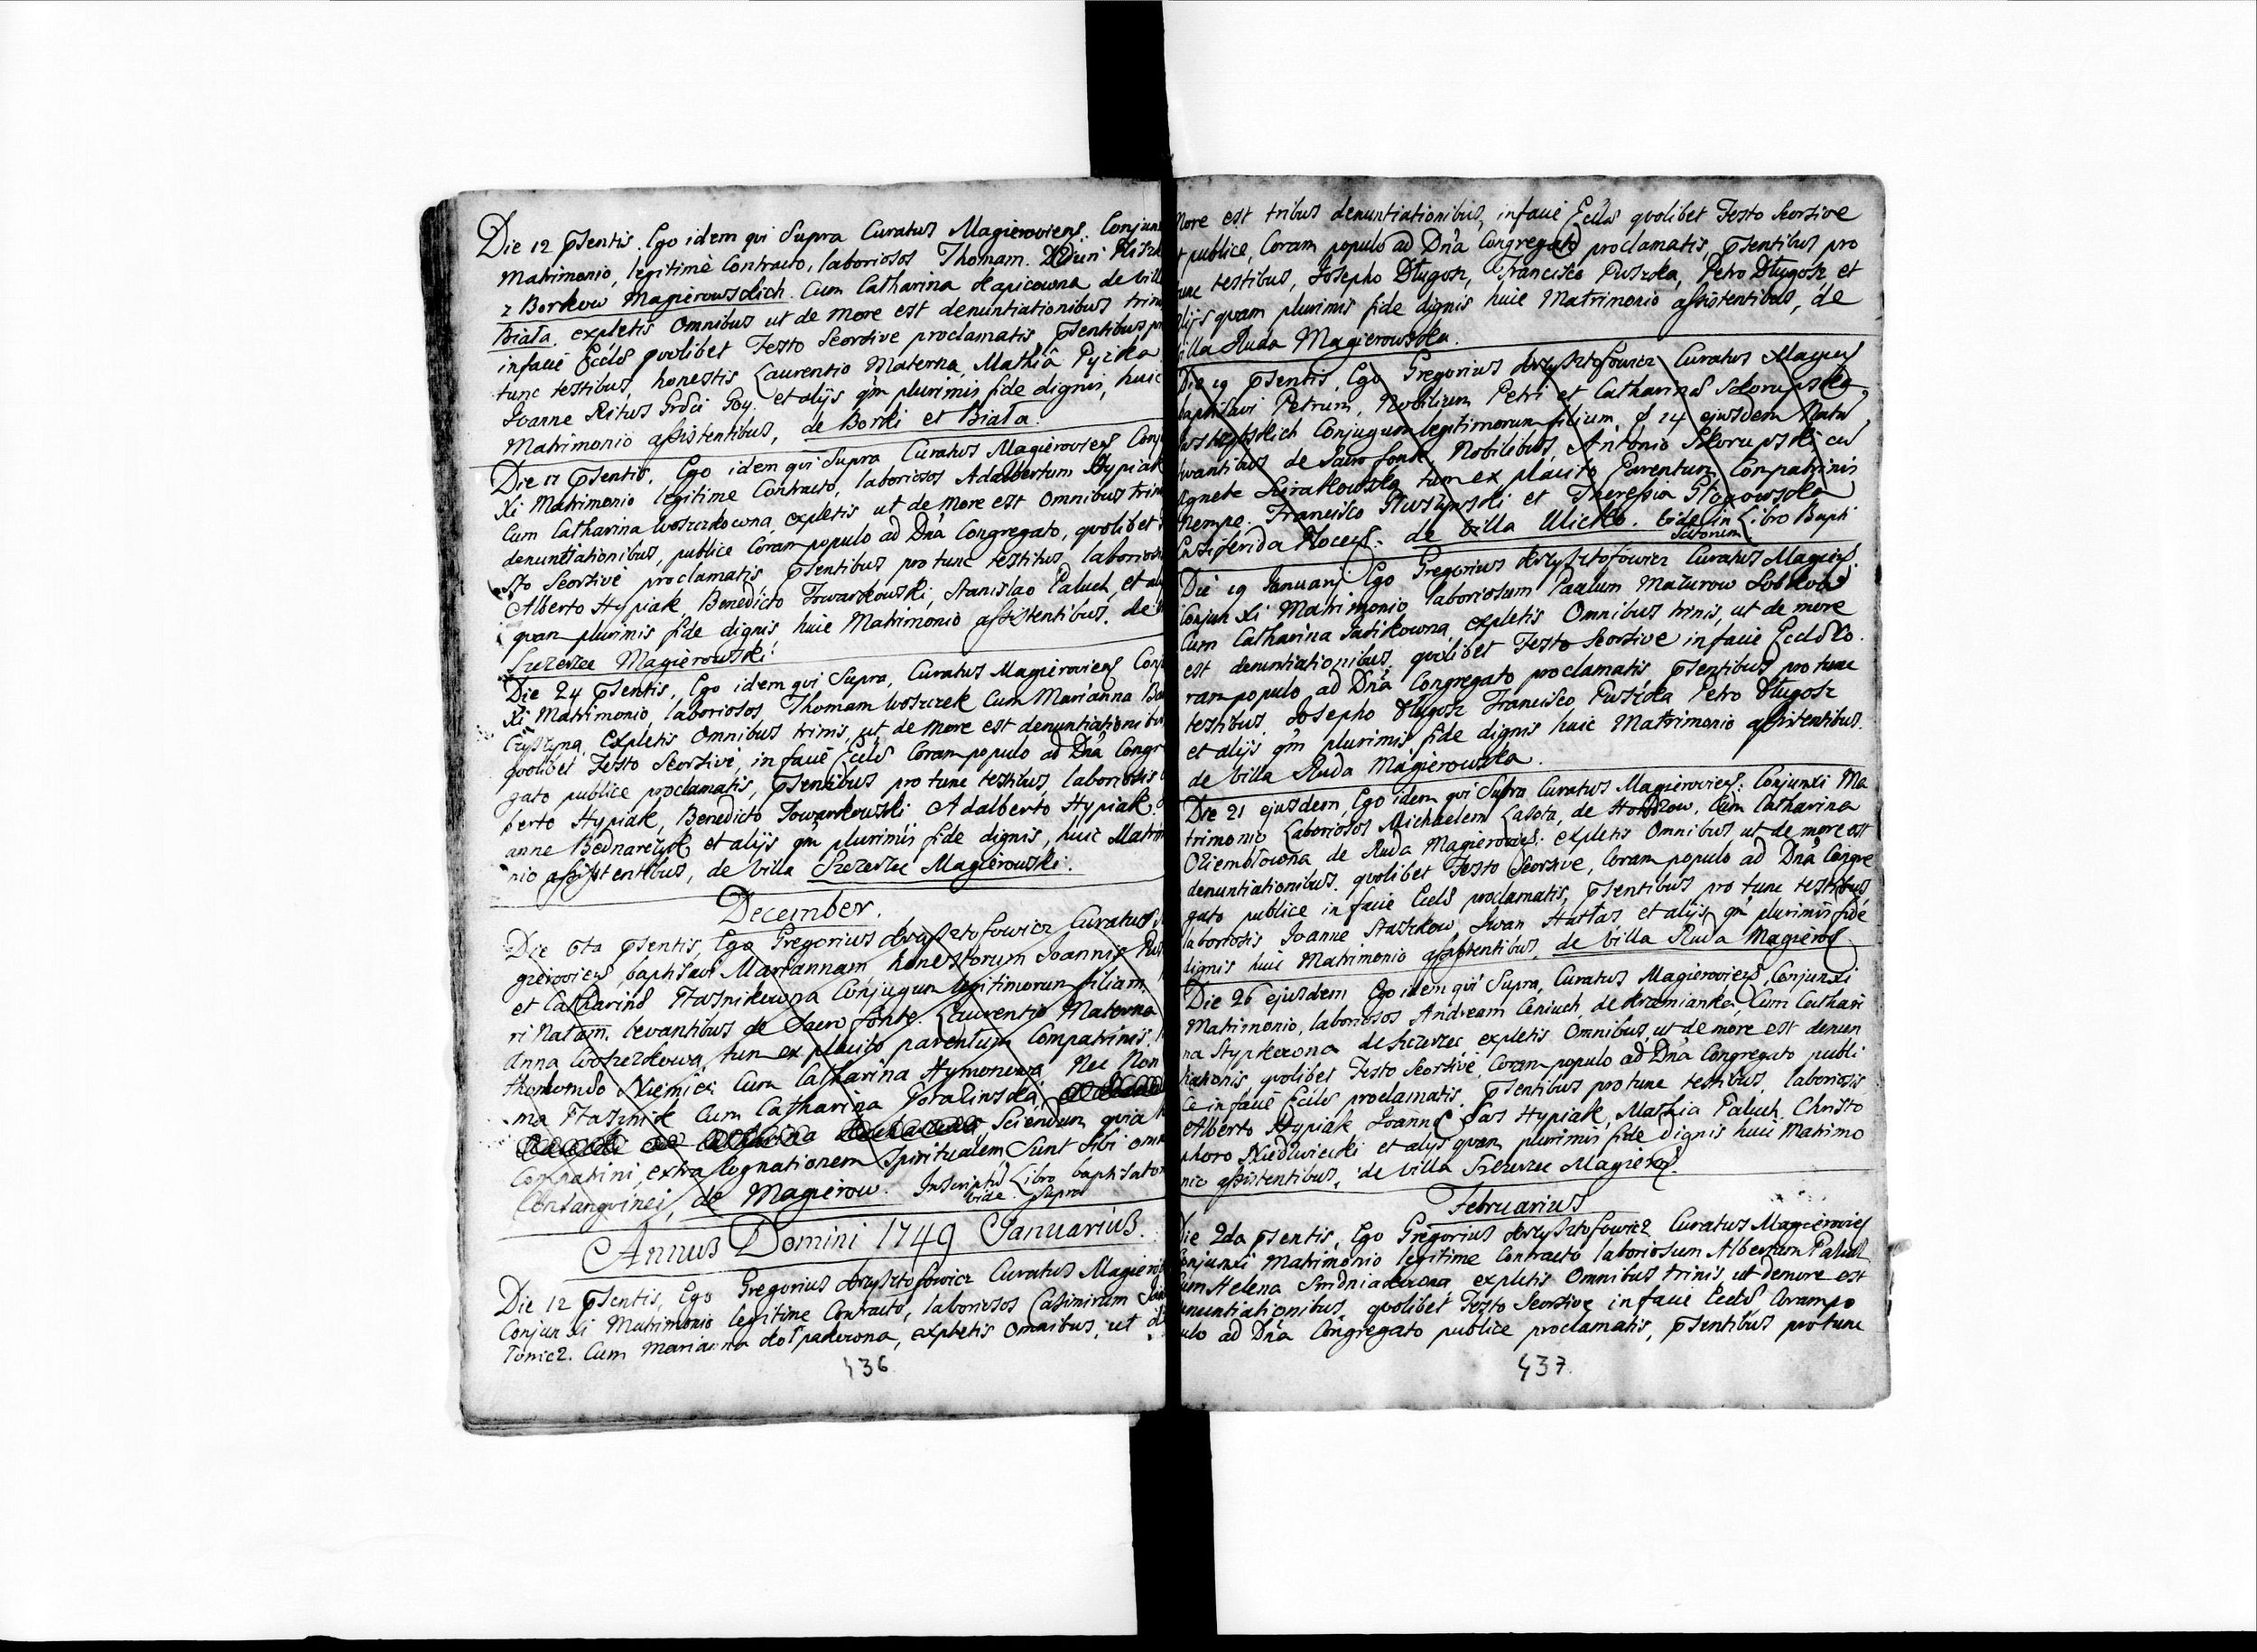 Die 12 psentis. Ego idem qvi Supra Curatus Magieroviens. Conjun
Matrimonio, legitimè Contracto, laboriosos Thomam
z Borkow Magierowskich. Cum Catharina Kapicowna de Vill
Biała. expletis Omnibus ut de more est denuntiationibus trin
infacie Eccls qvolibet Festo Seorsive proclamatis psentibus p
tunc testibus, honestis Laurentio Materna, Mathiâ Pyzka
Joanne Ritus Grӕci Boy. et alijs qm plurimis fide dignis, huic
Matrimonio assistentibus, de Borki et Biała.
Die 17 psentis. Ego idem qvi Supra Curatus Magieroviens Conj
Xi Matrimonio legitime Contracto, laboriosos Adalbertum Hypiak
Cum Catharina Woszczkowna, expletis ut de more est Omnibus trin
denuntiationibus, publice Coram populo ad Dnâ Congregato, qvolibet
sto Seorsive proclamatis psentibus pro tunc testibus, laborios
Alberto Hypiak, Benedicto Towarkowski, Stanislao Paluch, et al
qvam plurimis fide dignis huic Matrimonio assistentibus. de
Szczerzec Magierowski.
Die 24 psentis, Ego idem qvi Supra, Curatus Magieroviens Conj
Xi Matrimonio, laboriosos Thomam Woszczek Cum Marianna
Czyszyna, Expletis Omnibus trinis, ut de more est denuntiationibu
qvolibet Festo Seorsive, in facie Eccls Coram populo ad Dnâ Congr
gato publice proclamatis, psentibus pro tunc testibus, laboriosis
berto Hypiak, Benedicto Towarkowski Adalberto Hypiak
anne Bednarczyk et alijs qm plurimis fide dignis, huic Matrim
nio assistentibus, de Villa Szczerzec Magierowski.
December.
Die 6ta psentis, Ego Gregorius Krzysztofowicz Curatus
gieroviens baptisavi Mariannam, honestorum Joannis
et Catharinӕ Ptasnikowna Conjugum legitimorum filiam
ri Natam. levantibus de Sacro fonte. Laurentio Materna
Anna Woszczkowa, tum ex placito parentum Compatrinis.
Niemiec Cum Catharina Hymonowa Nec Non
ma Ptasznik Cum Catharina Goralinska
Sciendum qvia
Compatrini, extra Cognationem Spiritualem Sunt Sibi om
Consangvinei, de Magierow. Inscriptũ Libro baptisator
vide supra
Annus Domini 1749 Januarius.
Die 12 psentis, Ego Gregorius Krzysztofowicz Curatus Magiero
Conjunxi Matrimonio legitime Contracto, laboriosos Casimirum
Tomicz. Cum Marianna Kołpakowna, expletis Omnibus, ut d
436
More est tribus denuntiationibus, infacie Eccls qvolibet Festo Seorsive
t publice, Coram populo ad Dnâ Congregato proclamatis, psentibus pro
unc testibus, Josepho Długosz, Francisco Puszka, Petro Długosz et
lijs qvam plurimis fide dignis huic Matrimonio assistentibus, de
illa Ruda Magierowska.
Die 19 psentis, Ego Gregorius Krzysztofowicz Curatus Magiers
baptisavi Petrum, Nobilium Petri et Catharinӕ Skorupskie
Conjugum legitimorum filium, d 14 ejusdem Natu
levantibus de Sacro fonte, Nobilibus, Antonio Skorupski cu
Agnete Sierakowska, tum ex placito Parentum Compatrinis
Nempe: Francisco Kuszynski et Theressia Głogowska
de Villa Ulicko. Vide in Libro Bapti
satorum
Die 19 Januarij Ego Gregorius Krzysztofowicz Curatus Magiers
Conjunxi Matrimonio, laboriosum Paulum Mazurow
Cum Catharina Jasikowna, expletis Omnibus trinis, ut de more
est denuntiationibus. qvolibet Festo Seorsive in facie Eccls Co.
ram populo ad Dnâ Congregato proclamatis psentibus pro tunc
testibus. Josepho Długosz Francisco, Puszka Petro Długosz
et alijs qm plurimis fide dignis huic Matrimonio assistentibus.
de Villa Ruda Magierowska.
Die 21 ejusdem, Ego idem qvi Supra Curatus Magieroviens: Conjunxi Ma
trimonio Laboriosos Michaelem Lasota, de Cum Catharina
Oziembłowna de Ruda Magieroviens: expletis Omnibus ut de more est
denuntiationibus. qvolibet Festo Seorsive, Coram populo ad Dnâ Congre
gato publice in facie Eccls proclamatis, psentibus pro tunc testibus
laboriosis Joanne Staszkow, Iwan Hartas et alijs qm plurimis fide
dignis huic Matrimonio assistentibus, de Villa Ruda Magiers
Die 26 ejusdem Ego idem qvi Supra, Curatus Magieroviens, Conjunxi
Matrimonio, laboriosos Andream Ceniuch, de Kramianka, Cum Cathari
na Stypkowna de Szczerzec expletis Omnibus ut de more est denun
tiationis, qvolibet Festo Seorsive, Coram populo ad Dnâ Congregato publi
ce in facie Eccls proclamatis, psentibus pro tunc testibus, laboriosis
Alberto Hypiak Joanne Sas Hypiak, Mathia Paluch. Christo
phoro Niedzwiecki et alijs qvam plurimis fide dignis huic Matrimo
nio assistentibus, de Villa Szczerzec Magiers.
Februarius
Die 2da psentis, Ego Gregorius Krzysztofowicz Curatus Magierovies
Conjunxi Matrimonio legitime Contracto laboriosum Albertum Paluch
Cum Helena Smidniakowna, expletis Omnibus trinis, ut de more est
enuntiationibus, qvolibet Festo Seorsive in facie Eccls Coram po
ulo ad Dnâ Congregato publice proclamatis, psentibus pro tunc
437.